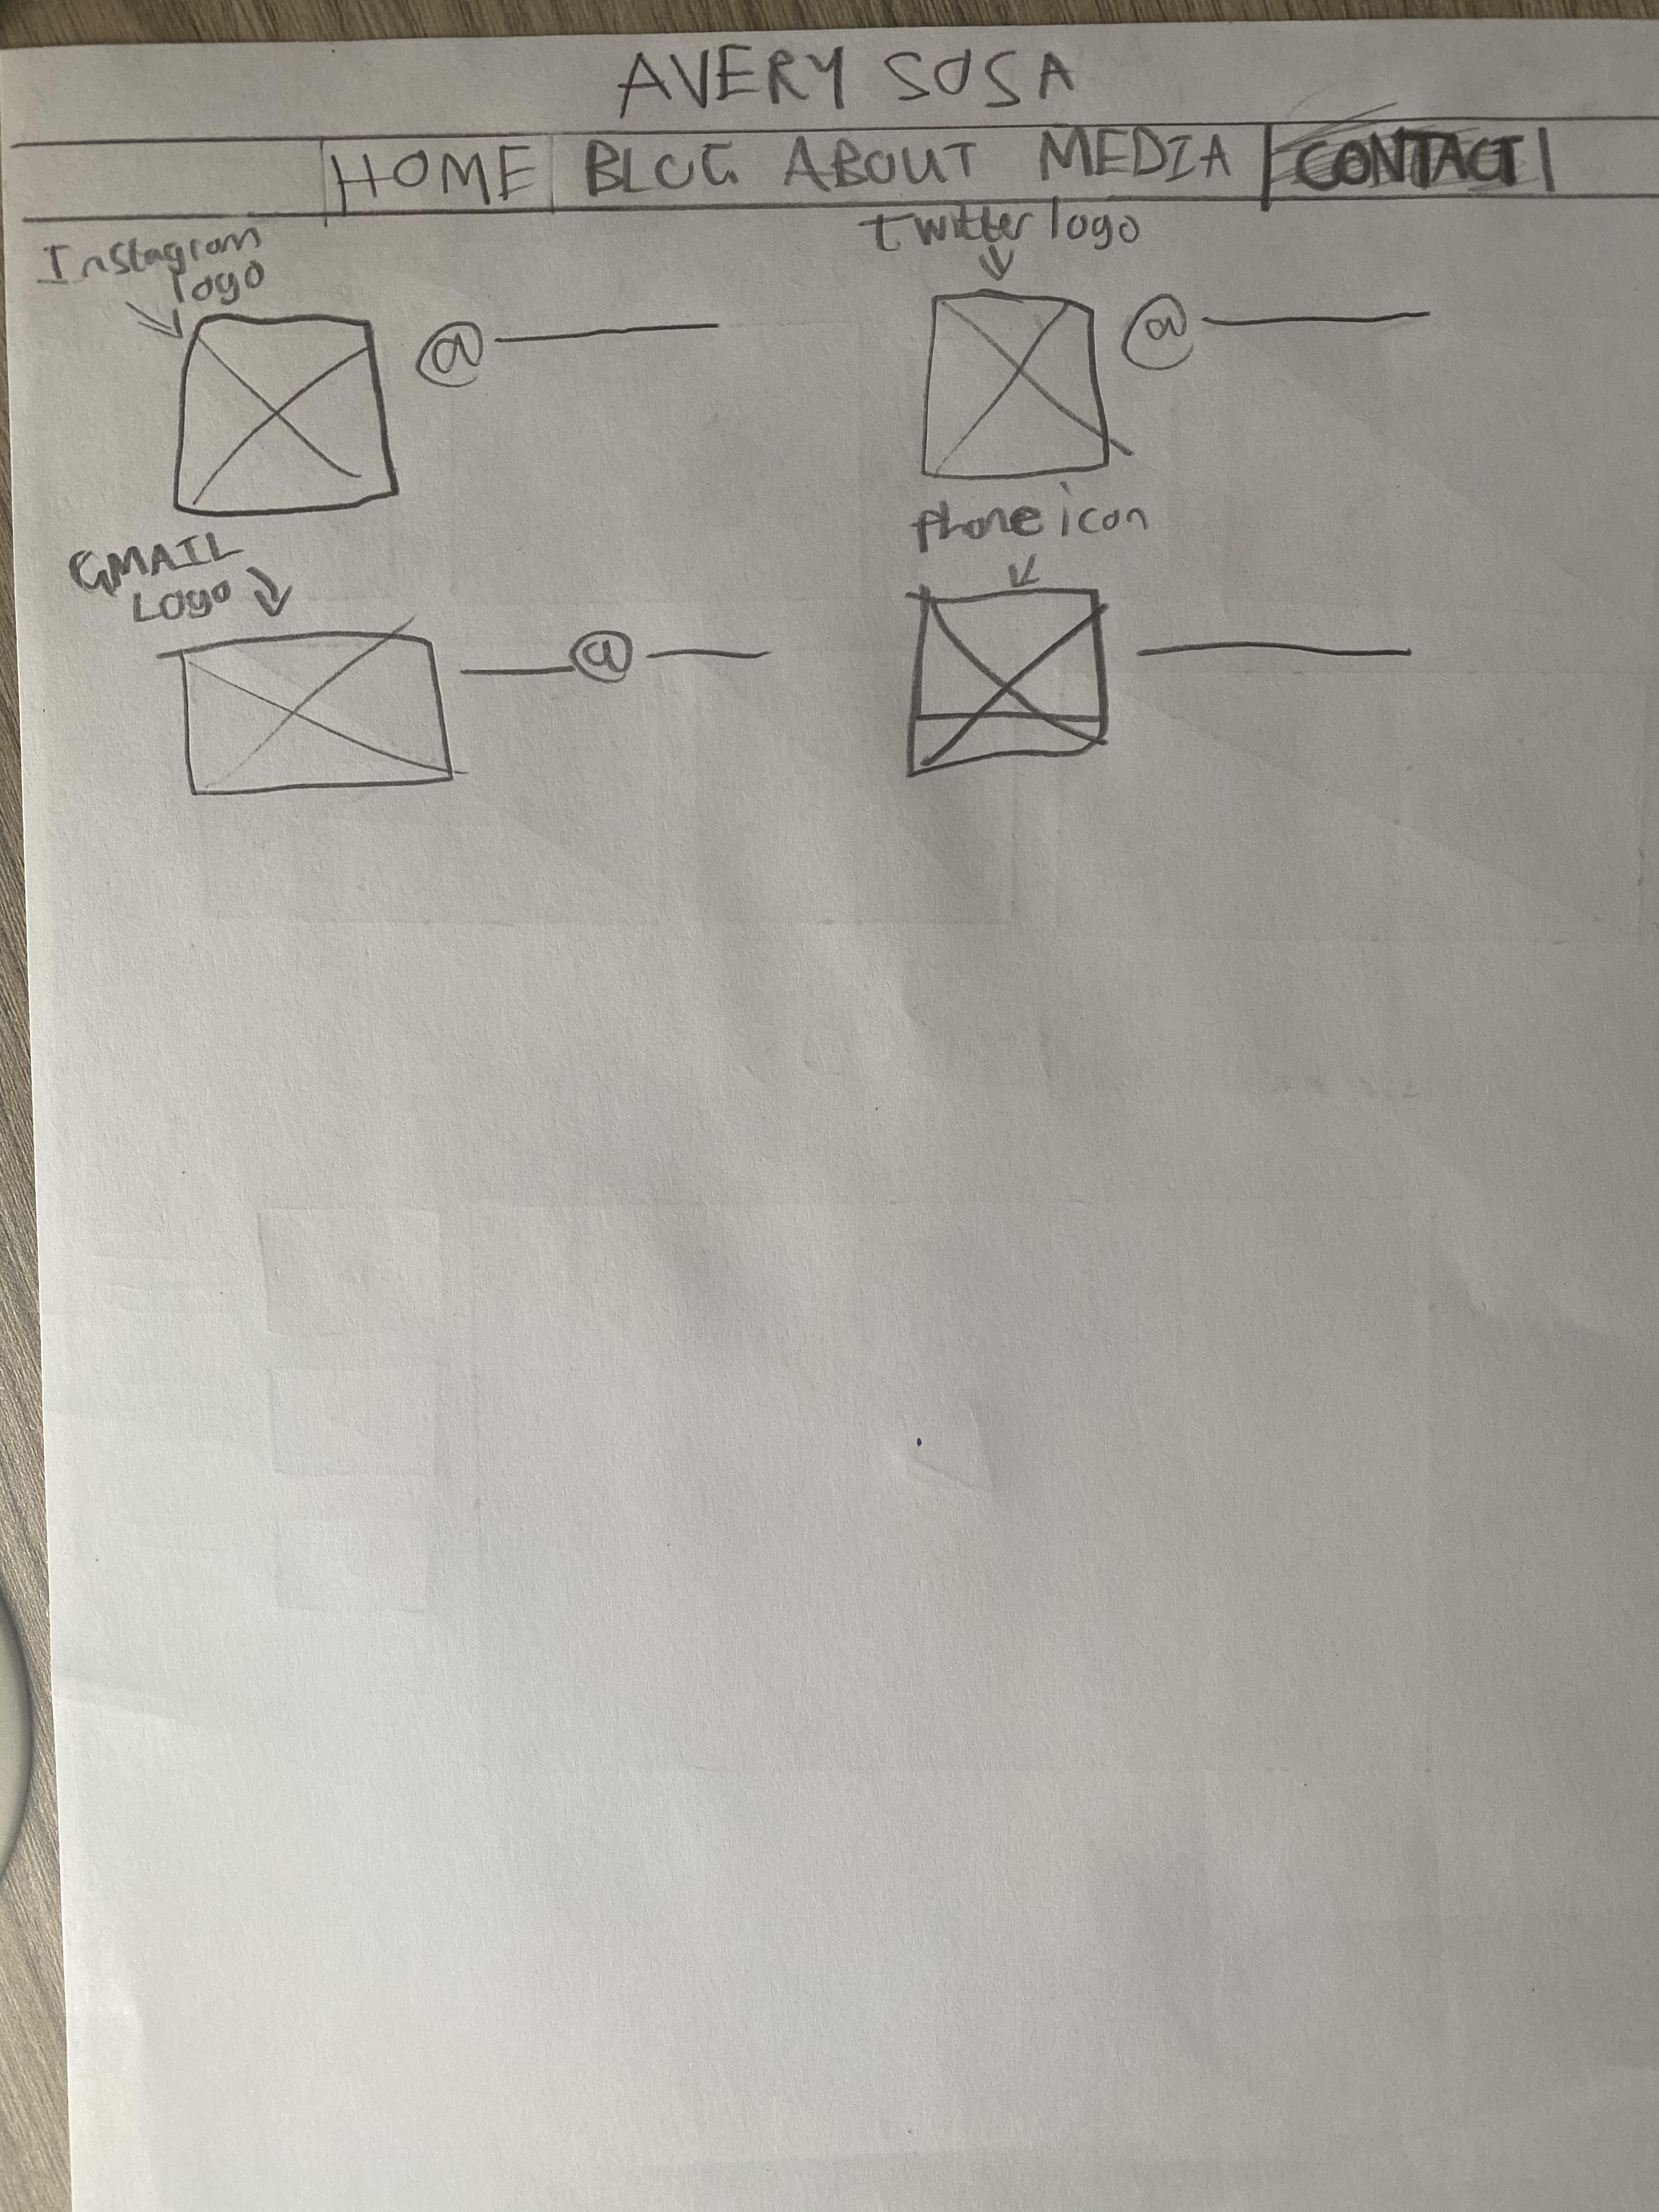 AVERY SOSA
HOME BLOG ABOUT MEDIA CONTACT
Instagram
logo
twitter logo
@
@
GMAIL
Logo
phone icon
@